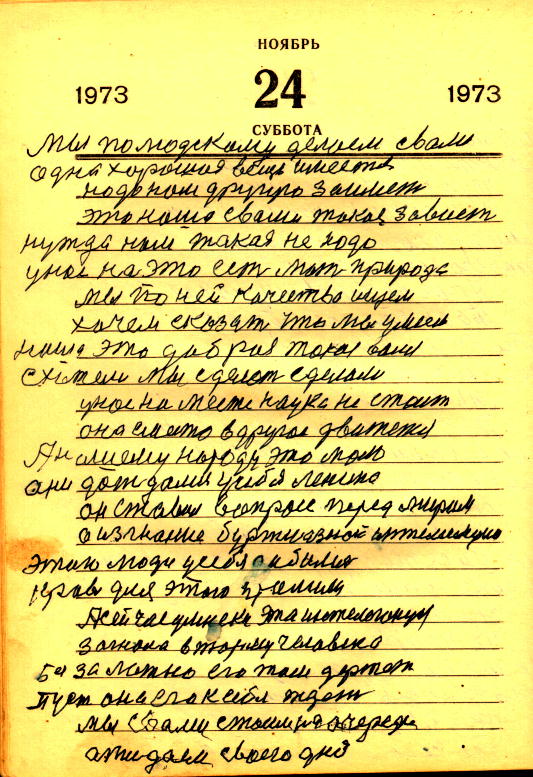 НОЯБРЬ
1973 24 1973
СУББОТА
Мы по модскому делаем свами
одна хорошая вещ имеется
надо нам другую заимет
это наша свами такая завист
нужда нам такая не надо
у нас на это ест мат природа
мы по ней качество ищем
хочем сказат что мы умеем
наша это добрая такая
хотели мы сделат сделали
у нас на месте наука не стоит
она смето в другое движения
А нашему народу это мало
они дождали у себя Ленина
он ставил вопрос перед миром
о изгнание буржуазной
этаю люди у себя
права для этого
А сейчас
загнала в тюрму человека
За его там держат
Пуст она его к себе ждет
мы свами стоим на очереде
ожидаем своего дня